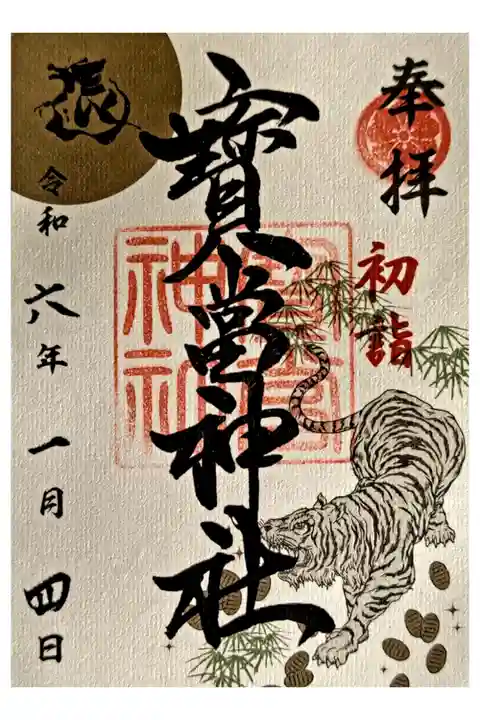 奉拝
初詣
寳當神社
辰
令和六年一月四日